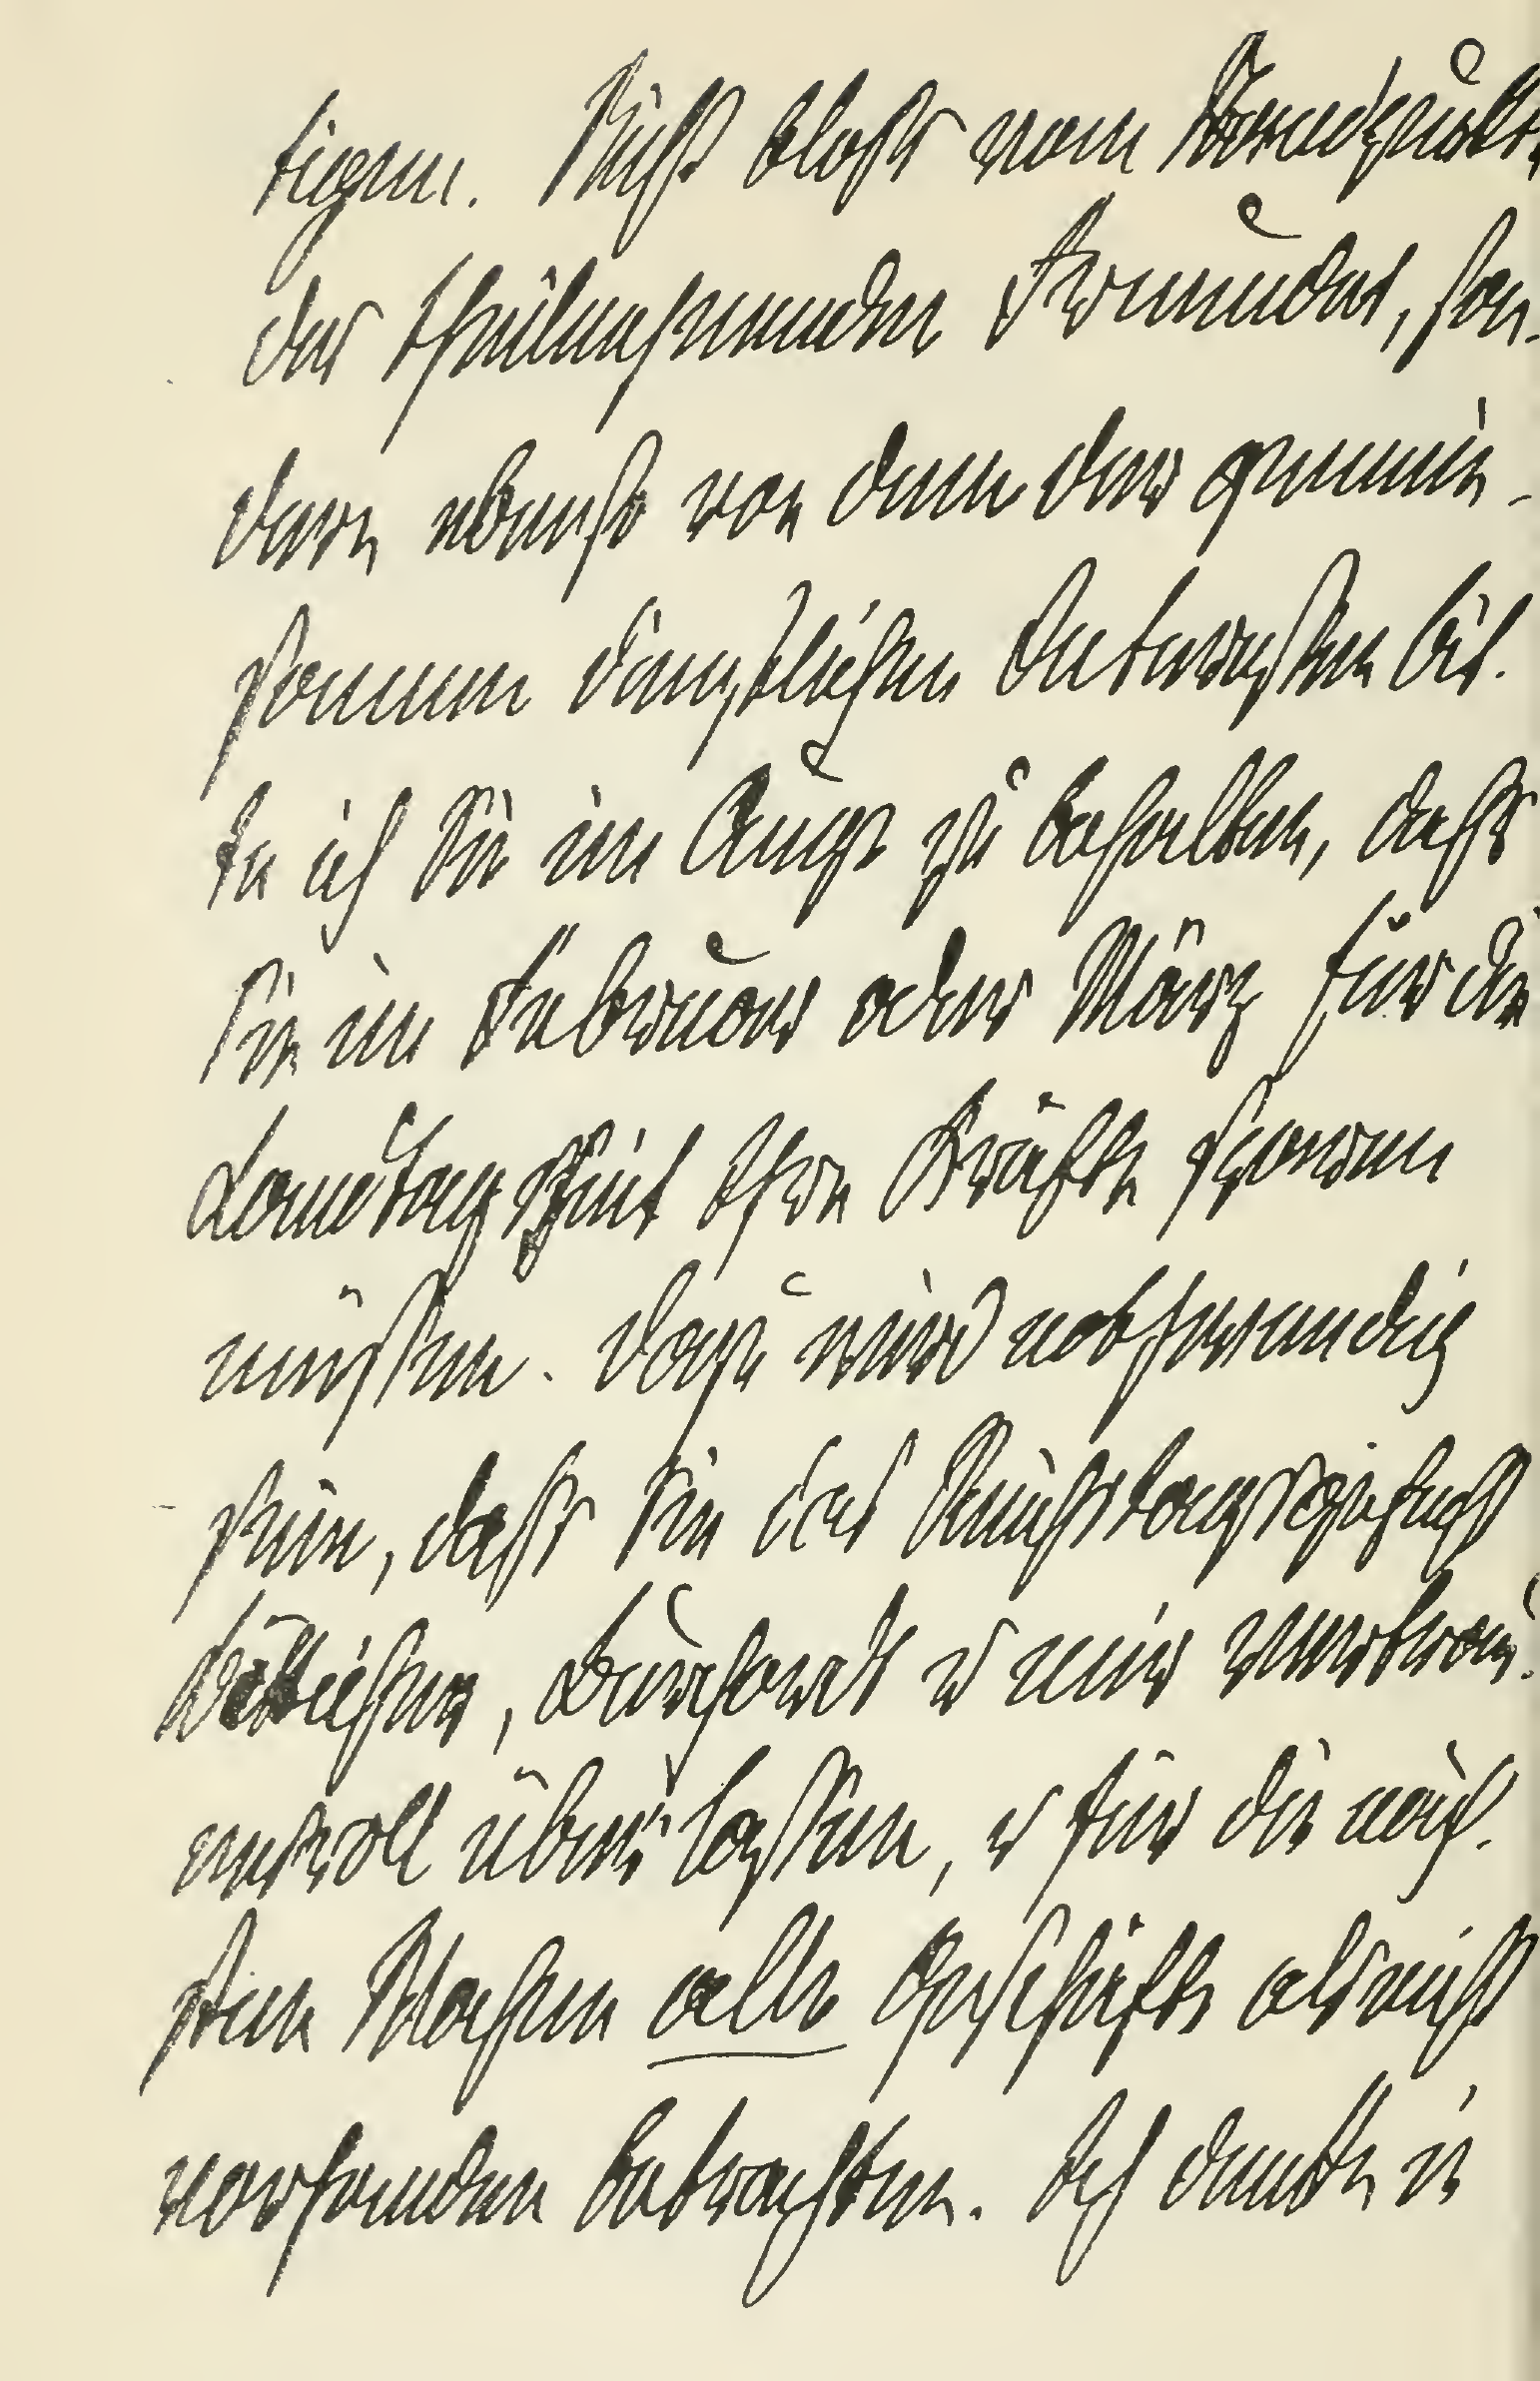 tigen. Nicht bloß vom Standpunkte
der theilnehmenden Freundes, son-
dern ebenso von dem der gemein-
samen dienstlichen Interessen bit-
te ich Sie im Auge zu behalten, daß
Sie im Februar oder März für die
Landtagszeit Ihre Kräfte sparen
müssen. Dazu wird nothwendig
sein, daß Sie das Reichstagsgeschäft
Delbrück, Burchard u mir vertrau-
ensvoll überlassen, u für die näch-
sten Wochen alle Geschäfte als nicht
vorhanden betrachten. Ich denke in